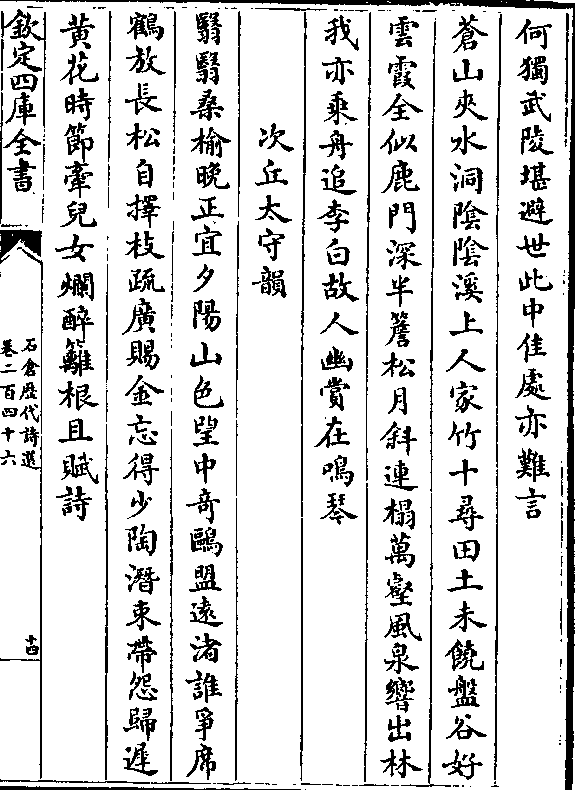 何獨武陵堪避世此中佳處亦難言
蒼山夾水洞陰陰溪上人家竹十尋田土未饒盤谷好
雲霞全似鹿門深半簷松月斜連榻萬壑風泉響出林
我亦乘舟追李白故人幽賞在鳴琴
次丘太守韻
翳翳桑榆晚正宜夕陽山色望中奇鷗盟遠渚誰爭席
鶴放長松自擇枝疏廣賜金忘得少陶潛束帶怨歸遲
黄花時節牽兒女爛醉籬根且賦詩
欽定四庫全書
石倉歷代詩選
卷二百四十六
十四